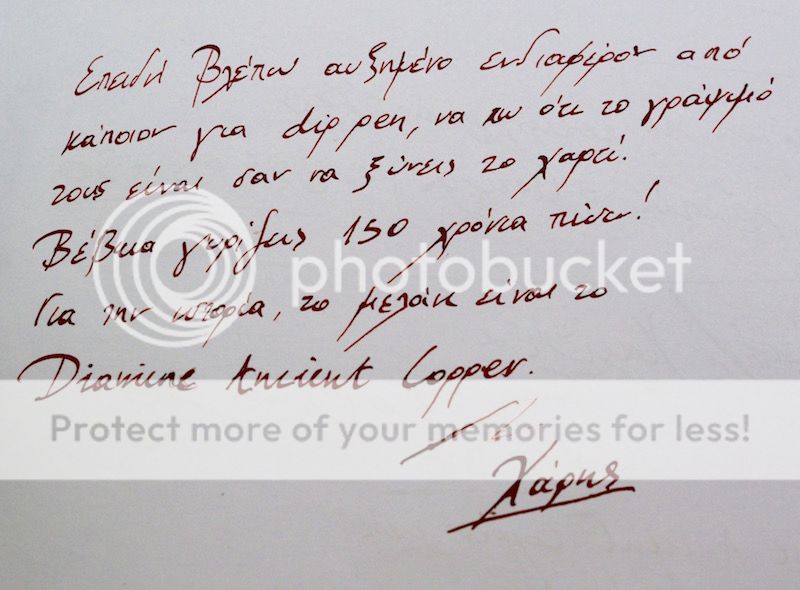 Επειδή βλέπω αυξημένο ενδιαφέρον από
κάποιον για dip pen, να πω ότι το γράψιμό
τους είναι σαν να ξύνεις το χαρτί.
Βέβαια γυρίζεις 150 χρόνια πίσω!
Για την ιστορία, το μελάνι είναι το
photobucket
Diamine Ancient Copper.
Protect more of your memories for less!
Χάρης